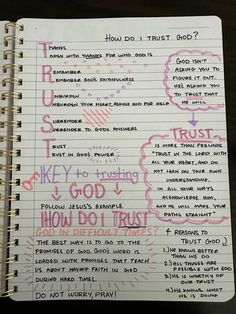 HOW DO I TRUST GOD?
T
THANKS
OPEN WITH THANKS FOR WHO GOD IS
R
REMEMBER
REMEMBER GOD'S FAITHFULNESS
U
UNBURDEN
UNBURDEN YOUR HEART, ASKING GOD FOR HELP
S
SURRENDER
SURRENDER TO GOD'S ANSWERS
T
TRUST
TRUST IN GOD'S POWER
GOD ISN'T
ASKING YOU TO
FIGURE IT OUT.
HE'S ASKING YOU
TO TRUST THAT
HE WILL
TRUST
IS MORE THAN FEELINGS
"TRUST IN THE LORD WITH
ALL YOUR HEART, AND DO
NOT LEAN ON YOUR OWN
UNDERSTANDING,
IN ALL YOUR WAYS
ACKNOWLEDGE HIM,
AND HE WILL MAKE YOUR
PATHS STRAIGHT"
KEY to trusting
GOD
FOLLOW JESUS'S EXAMPLE
HOW DO I TRUST
GOD IN DIFFICULT TIMES?
THE BEST WAY IS TO GO TO THE
PROMISES OF GOD. GOD'S WORD IS
LOADED WITH PROMISES THAT TEACH
US ABOUT HAVING FAITH IN GOD
DURING HARD TIMES.
DO NOT WORRY, PRAY!
4 REASONS TO
TRUST GOD
1) HE KNOWS BETTER
THAN WE DO
2) ALL THINGS ARE
POSSIBLE WITH GOD
3) HE IS WORTHY OF
OUR TRUST
4) HE KNOWS WHAT
HE IS DOING